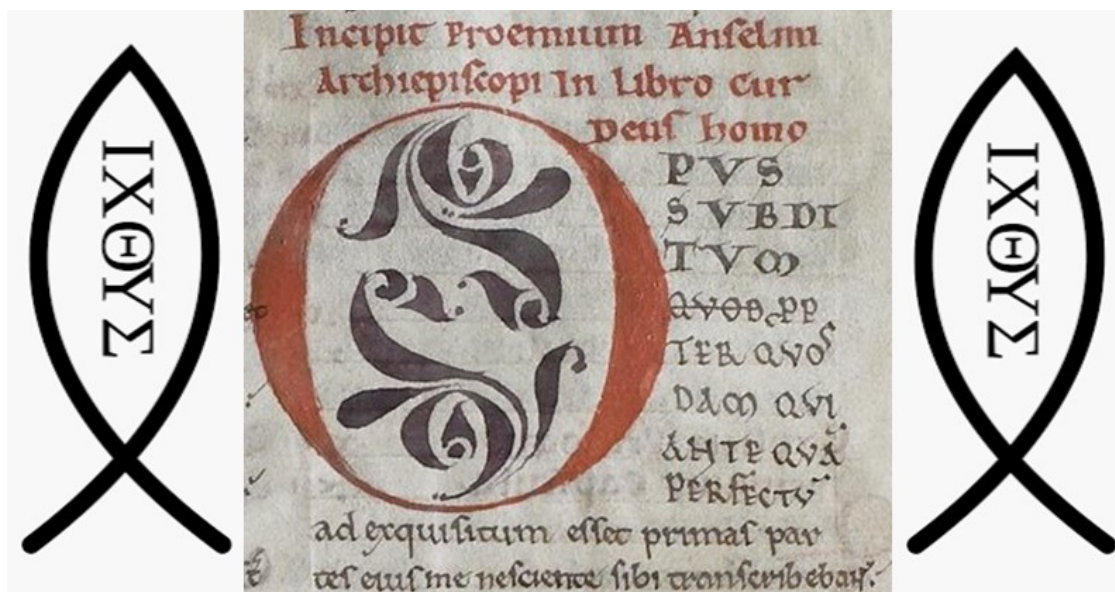 ΙΧΘΥΣ
Incipit Proemium Anselmi
Archiepiscopi In Libro Cur
Deus homo
OPVS
SVBDI
TVM
QVOD PP
TER QVOS
DAM QVI
ANTE QVĀ
PERFECTV̄
ad exquisitum esset primas par
tes eius me nesciente sibi transcribebant.
ΙΧΘΥΣ